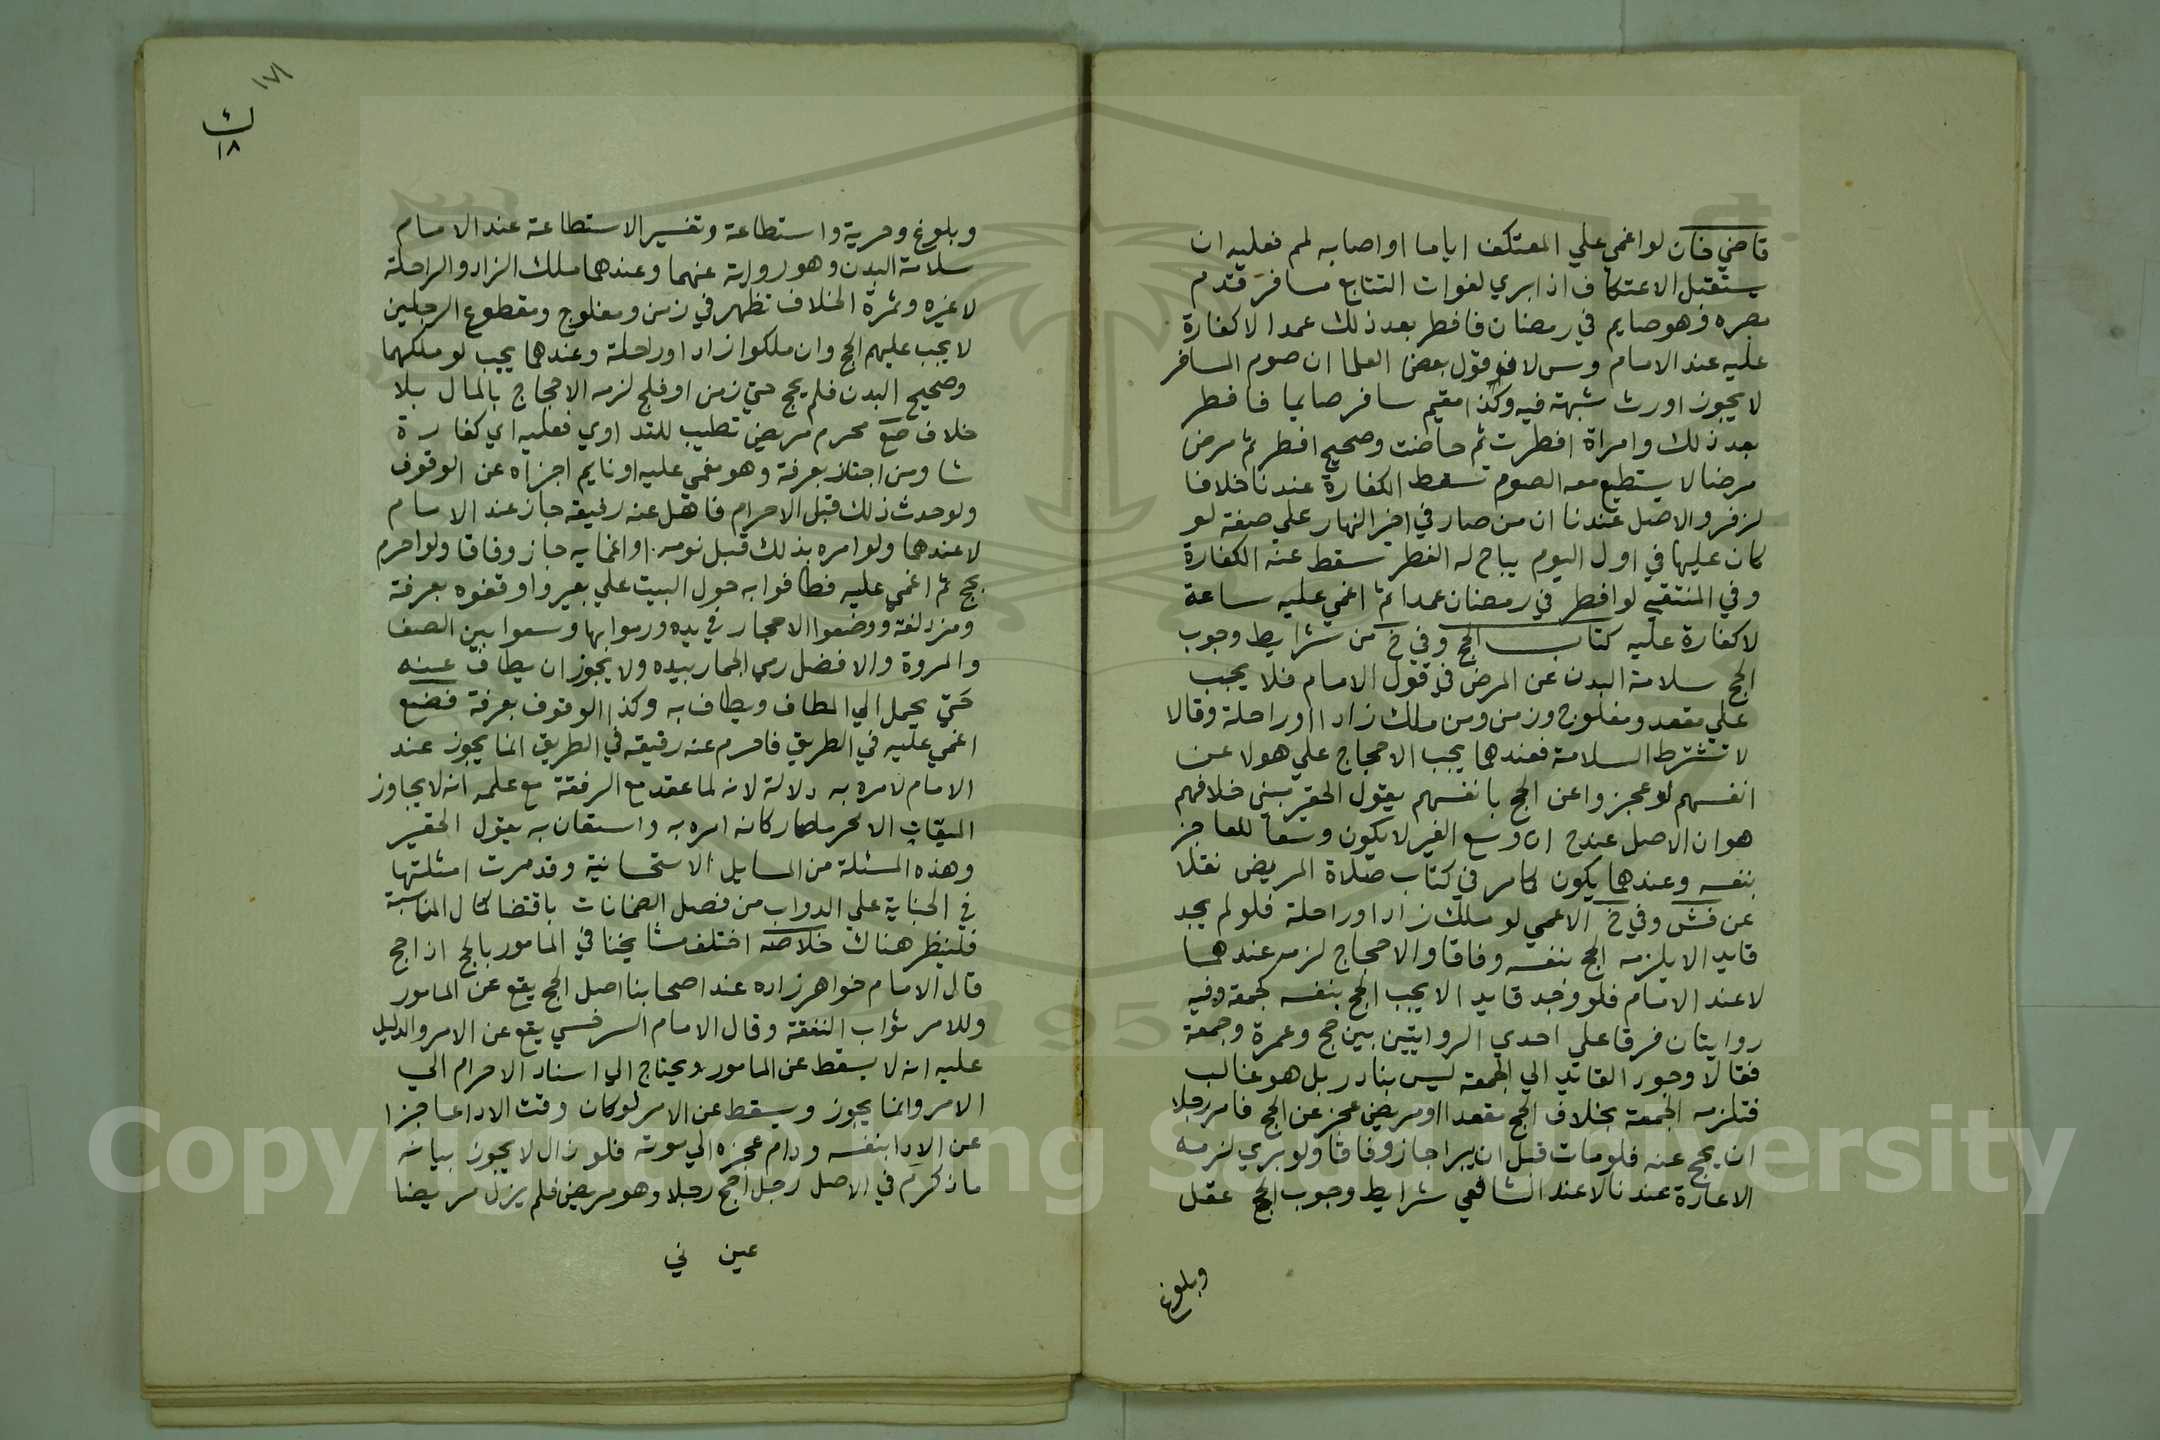 قاضي خان لو اغمي علي المعتكف اياما او اصابه لمم فعليه ان
يستقبل الاعتكاف اذا بري لفوات التتابع مسافر قدم
مصره وهو صايم في رمضان فافطر بعد ذلك عمدا لا كفارة
عليه عند الامام وس لان قول بعض العلما ان صوم المسافر
لا يجوز اورث شبهة فيه وكذا مقيم سافر صايما فافطر
بعد ذلك وامراة افطرت ثم حاضت وصحيح افطر ثم مرض
مرضا لا يستطيع معه الصوم تسقط الكفارة عندنا خلافا
لزفر والاصل عندنا ان من صار في اخر النهار علي صفة لو
كان عليها في اول اليوم يباح له الفطر سقط عنه الكفارة
وفي المنتقي لو افطر في رمضان عمدا ثم اغمي عليه ساعة
لا كفارة عليه كتاب الحج وفي خ من شرايط وجوب
الحج سلامة البدن عن المرض في قول الامام فلا يجب
علي مقعد ومفلوج وزمن ومن ملك زادا او راحلة وقالا
لا تشترط السلامة فعندهما يجب الاحجاج علي هولا عن
انفسهم لو عجزوا عن الحج بانفسهم يقول الحقير بني خلافهم
هو ان الاصل عندح ان وسع الغير لا يكون وسعا للعاجز
بنفسه وعندهما يكون كما مر في كتاب صلاة المريض نقلا
عن فش وفي خ الاعمي لو ملك زادا وراحلة فلو لم يجد
قايدا لا يلزمه الحج بنفسه وفاقا والاحجاج لزمه عندهما
لا عند الامام فلو وجد قايدا لا يجب الحج بنفسه كجمعة وفيه
روايتان فرقا علي احدي الروايتين بين حج وعمرة وجمعة
فقالا وجود القايد الي الجمعة ليس بنادر بل هو غالب
فتلزمه الجمعة بخلاف الحج مقعدا او مريض عجز عن الحج فامر رجلا
ان يحج عنه فلو مات قبل ان يبرا جاز وفاقا ولو بري لزمه
الاعادة عندنا لا عند الشافعي شرايط وجوب الحج عقل
وبلوغ
١٧١
ك
١٨
وبلوغ وحرية واستطاعة وتفسير الاستطاعة عند الامام
سلامة البدن وهو رواية عنهما وعندهما ملك الزاد والراحلة
لا غيره وثمرة الخلاف تظهر في زمن ومفلوج ومقطوع الرجلين
لا يجب عليهم الحج وان ملكوا زادا وراحلة وعندهما يجب لو ملكهما
وصحيح البدن فلم يحج حتي زمن او فلج لزمه الاحجاج بالمال بلا
خلاف صع محرم مريض تطيب للتداوي فعليه اي كفارة
شا ومن اجتاز بعرفة وهو مغمي عليه او نايم اجزاه عن الوقوف
ولو حدث ذلك قبل الاحرام فاهل عنه رفيقه جاز عند الامام
لا عندهما ولو امره بذلك قبل نومه او اغمايه جاز وفاقا ولو احرم
بحج ثم اغمي عليه فطافوا به حول البيت علي بعير واوقفوه بعرفة
ومزدلفة ووضعوا الاحجار في يده ورموا بها وسعوا بين الصفا
والمروة والافضل رمي الجمار بيده ولا يجوز ان يطاف عنه
حتي يحمل الي المطاف ويطاف به وكذا الوقوف بعرفة فضع
اغمي عليه في الطريق فاحرم عنه رفيقه في الطريق انما يجوز عند
الامام لامره به دلالة لانه لما عقد مع الرفقة مع علمه انه لا يجاوز
الميقات الا محرما صار كانه امره به واستعان به يقول الحقير
وهذه المسئلة من المسايل الاستحسانية وقد مرت امثلتها
في الجناية علي الدواب من فصل الضمانات باقتضا كمال المناسبة
فلينظر هناك خلاصه اختلف مشايخنا في المامور بالحج اذا حج
قال الامام خواهر زاده عند اصحابنا اصل الحج يقع عن المامور
وللامر ثواب النفقة وقال الامام السرخسي يقع عن الامر والدليل
عليه انه لا يسقط عن المامور ويحتاج الي اسناد الاحرام الي
الامر وانما يجوز ويسقط عن الامر لو كان وقت الادا عاجزا
عن الادا بنفسه ودام عجزه الي موته فلو زال لا يجوز بيانه
ما ذكر م في الاصل رجل احج رجلا وهو مريض فلم يزل مريضا
عين ني
Copyright © King Saud University
1957